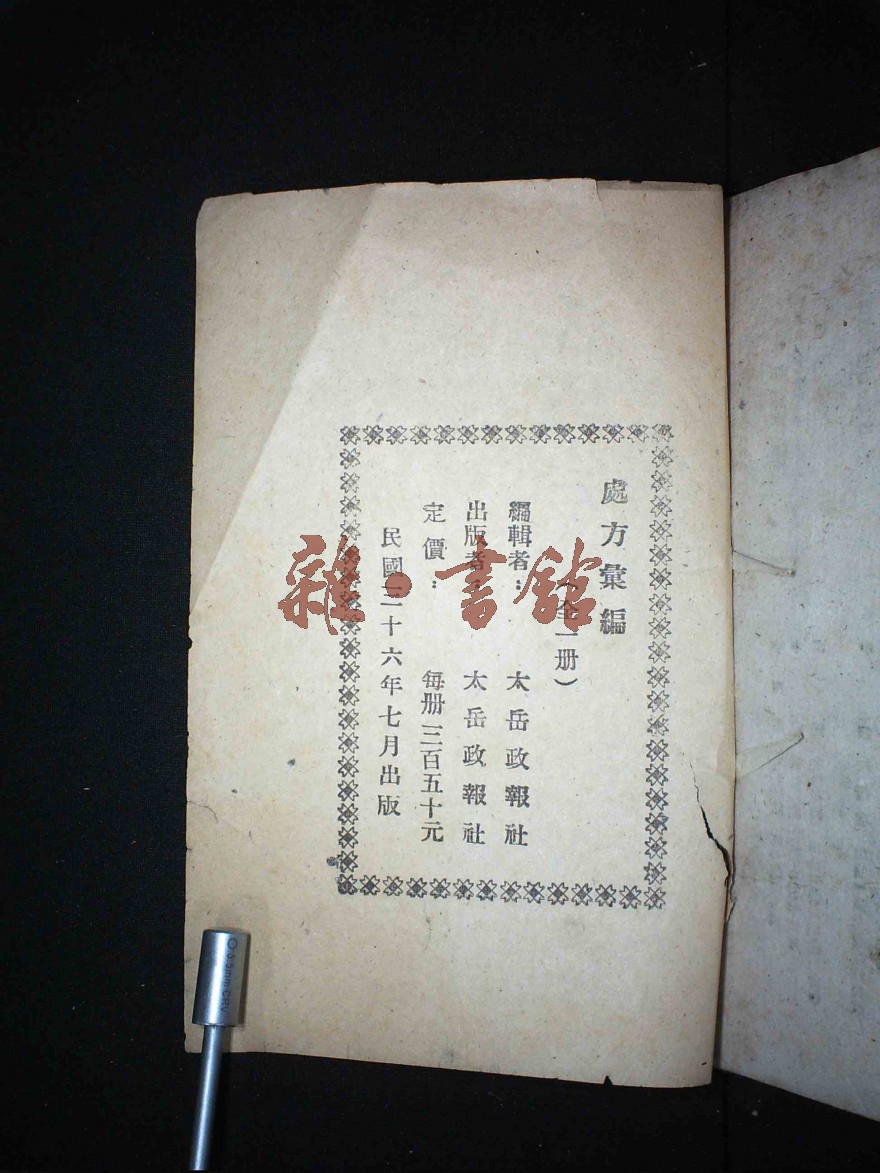 處方彙編
（全一册）
編輯者：太岳政報社
出版者：太岳政報社
定價：每册三百五十元
民國三十六年七月出版
雜·書館
0.5mm CRV